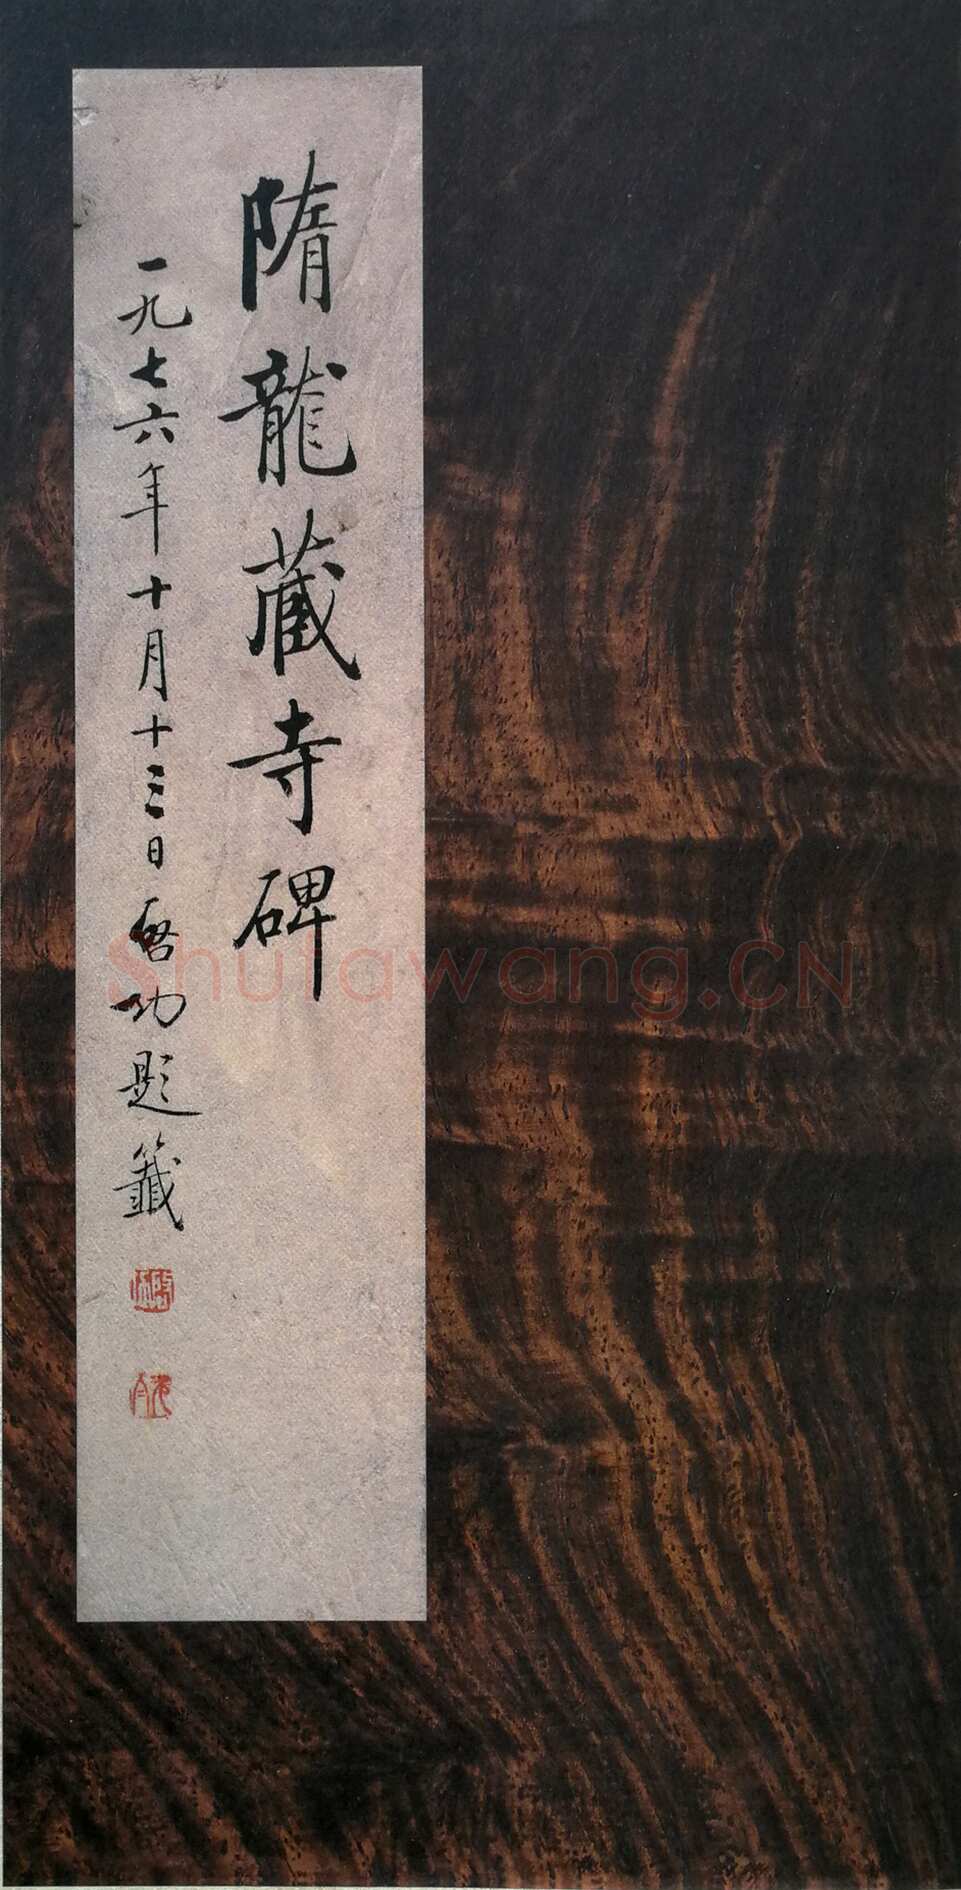 隋龍藏寺碑
一九七六年十月十三日啓功題籤
Shufawang.CN